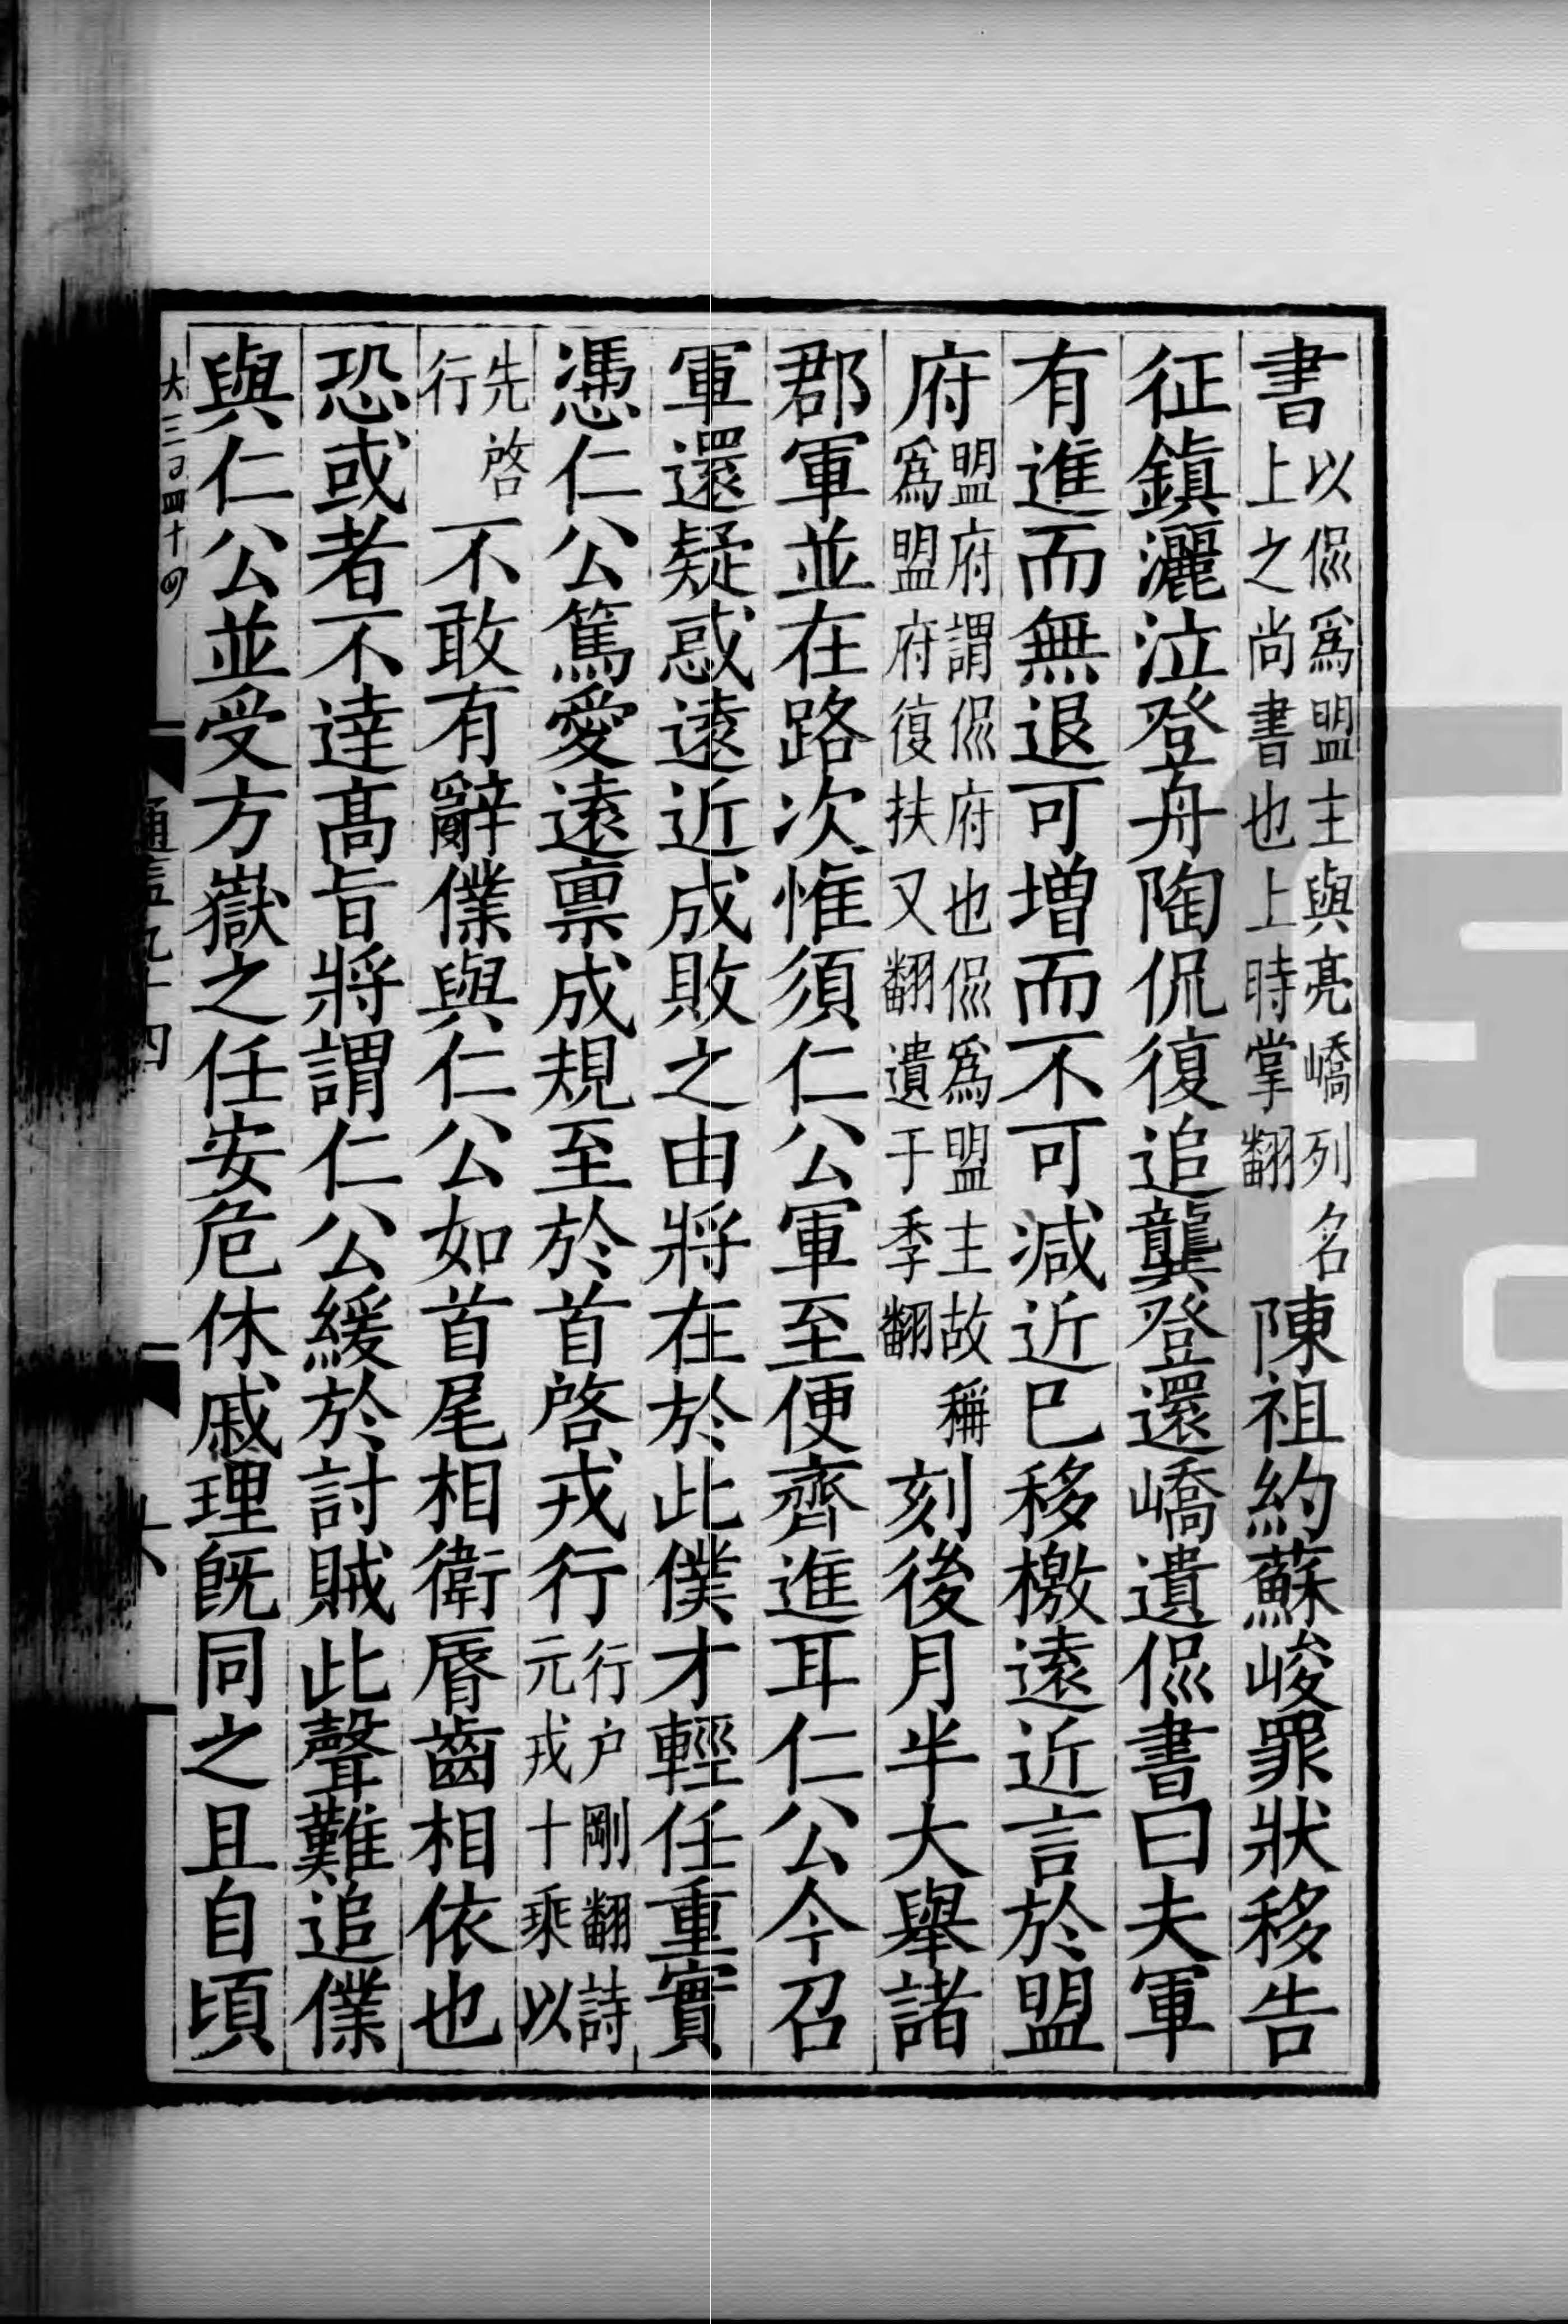 書以侃爲盟主與亮嶠列名上之尚書也上時掌翻陳祖約蘇峻罪狀移告
征鎮灑泣登舟陶侃復追龔登還嶠遺侃書曰夫軍
有進而無退可增而不可減近已移檄遠近言於盟
府盟府謂侃府也侃爲盟主故稱爲盟府復扶又翻遺于季翻刻後月半大舉諸
郡軍並在路次惟須仁公軍至便齊進耳仁公今召
軍還疑惑遠近成敗之由將在於此僕才輕任重實
憑仁公篤愛遠禀成規至於首啓戎行行户剛翻詩元戎十乘以
先啓行不敢有辭僕與仁公如首尾相衛脣齒相依也
恐或者不達高旨將謂仁公緩於討賊此聲難追僕
與仁公並受方嶽之任安危休戚理旣同之且自頃